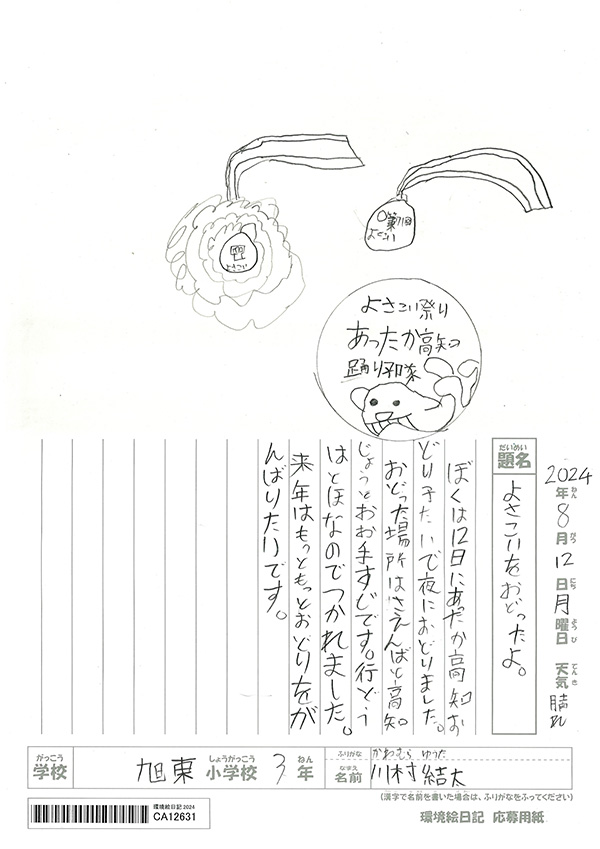 よさこい
第71回
よさこい
よさこい祭り
あったか高知
踊り子隊
2024年8月12日月曜日 天気晴れ
ねん がつ にち ようび てんき
だいめい
題名
よさこいをおどったよ。
ぼくは12日にあったか高知お
どり子たいで夜におどりました。
おどった場所はさえんばと高知
じょうとおお手すじです。行どう
はとほなのでつかれました。
来年はもっともっとおどりをが
んばりたいです。
がっこう しょうがっこう ねん
学校 旭東小学校 3年
ふりがな かわむら ゆうた
なまえ
名前 川村結太
(漢字で名前を書いた場合は、ふりがなをふってください)
環境絵日記2024
CA12631
環境絵日記 応募用紙